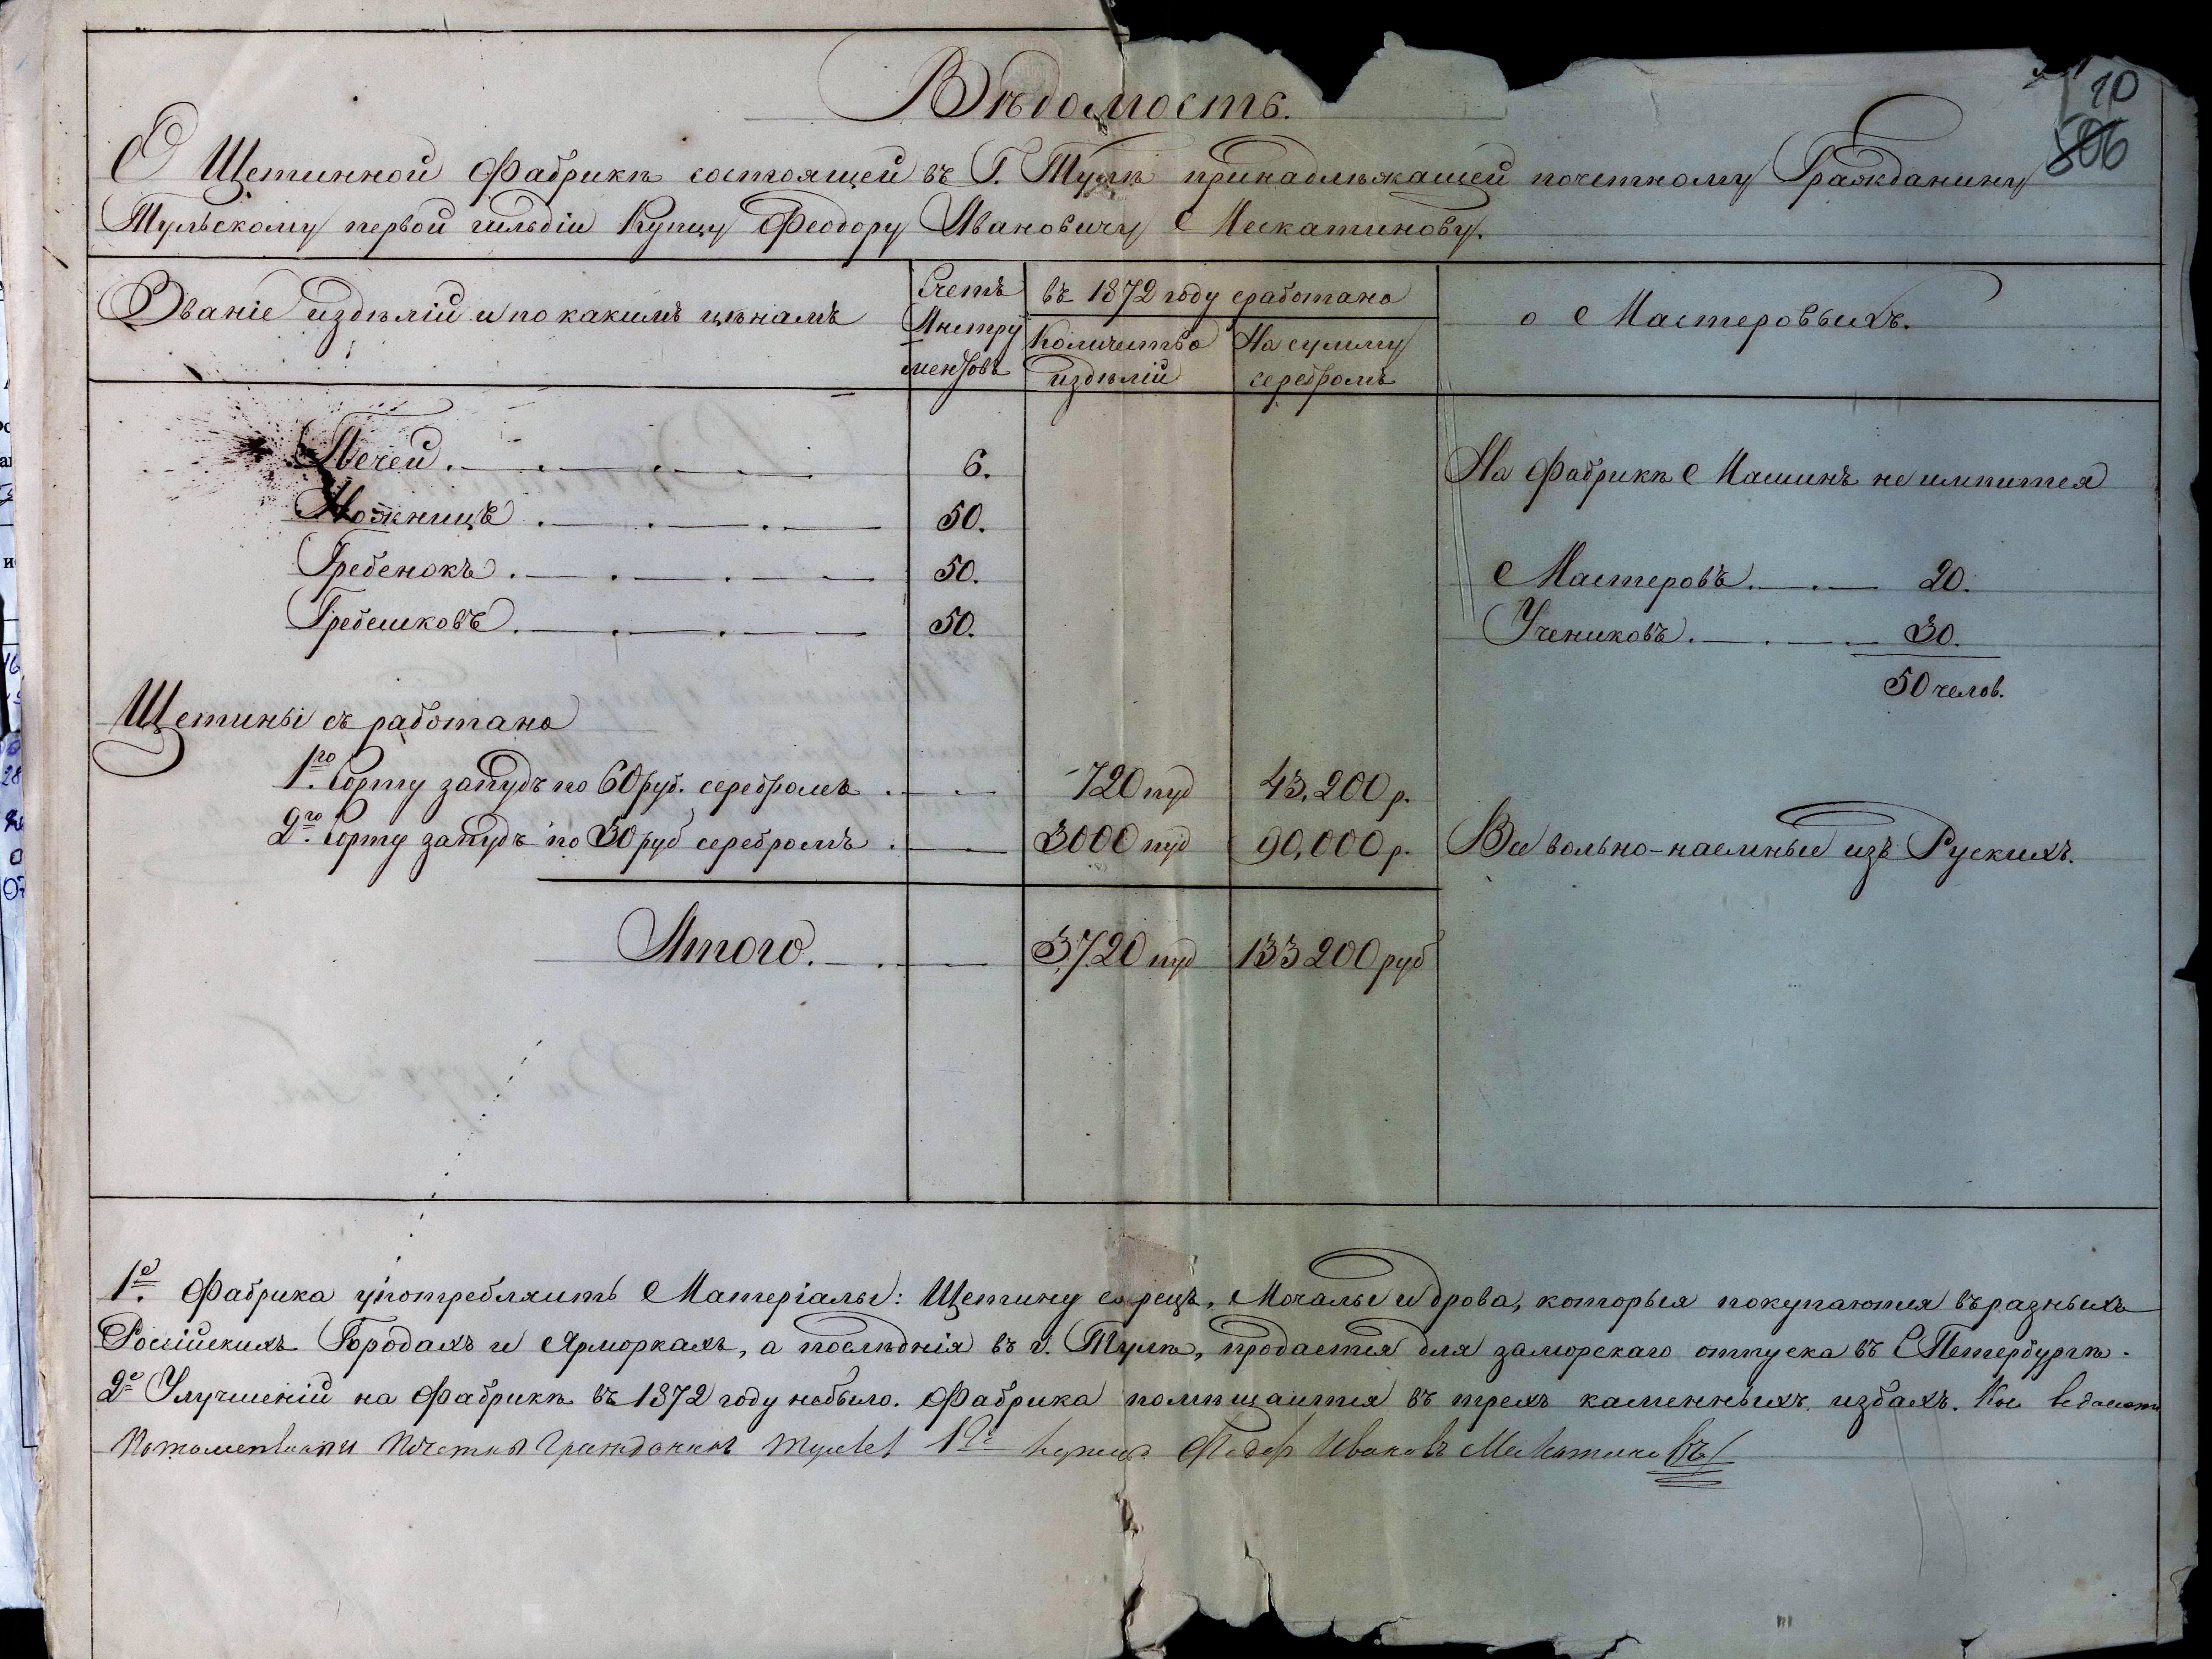 10
506
Вѣдомость.
О Щетинной Фабрикѣ состоящей въ Г. Тулѣ принадлѣжащей почетному Гражданину
Тульскому первой гильдіи Купцу Феодору Ивановичу Маскатинову.
Званіе издѣлій и по какимъ цѣнамъ
Счетъ
Инстру
ментовъ
въ 1872 году сработано
Количество
издѣлій
На сумму
серебромъ
о Мастеровыхъ.
Печей 6.
На Фабрикѣ Машинъ не имѣится
Ножницъ 50.
Гребенокъ 50.
Мастеровъ 20.
Гребешковъ 50.
Учениковъ 30.
50 челов.
Щетины съ работано
1го Сорту запудъ по 60 руб. серебромъ 720 пуд 43,200 р.
2го Сорту запудъ по 30 руб серебромъ 3000 пуд 90,000 р.
Все вольно-наемные изъ Рускихъ.
Итого. 3,720 пуд 133200 руб
1е. Фабрика употребляить Матеріалы: Щетину сырецъ, Мочалы и дрова, которыя покупаются въ разныхъ
Россійскихъ Городахъ и Ярморкахъ, а послѣднія въ г. Тулѣ, продается для заморскаго отпуска въ СПетербургѣ.
2е Улучшеній на Фабрикѣ въ 1872 году небыло. Фабрика помѣщаится въ трехъ каменныхъ избахъ. Къ
Гражданинъ 1й Иванов